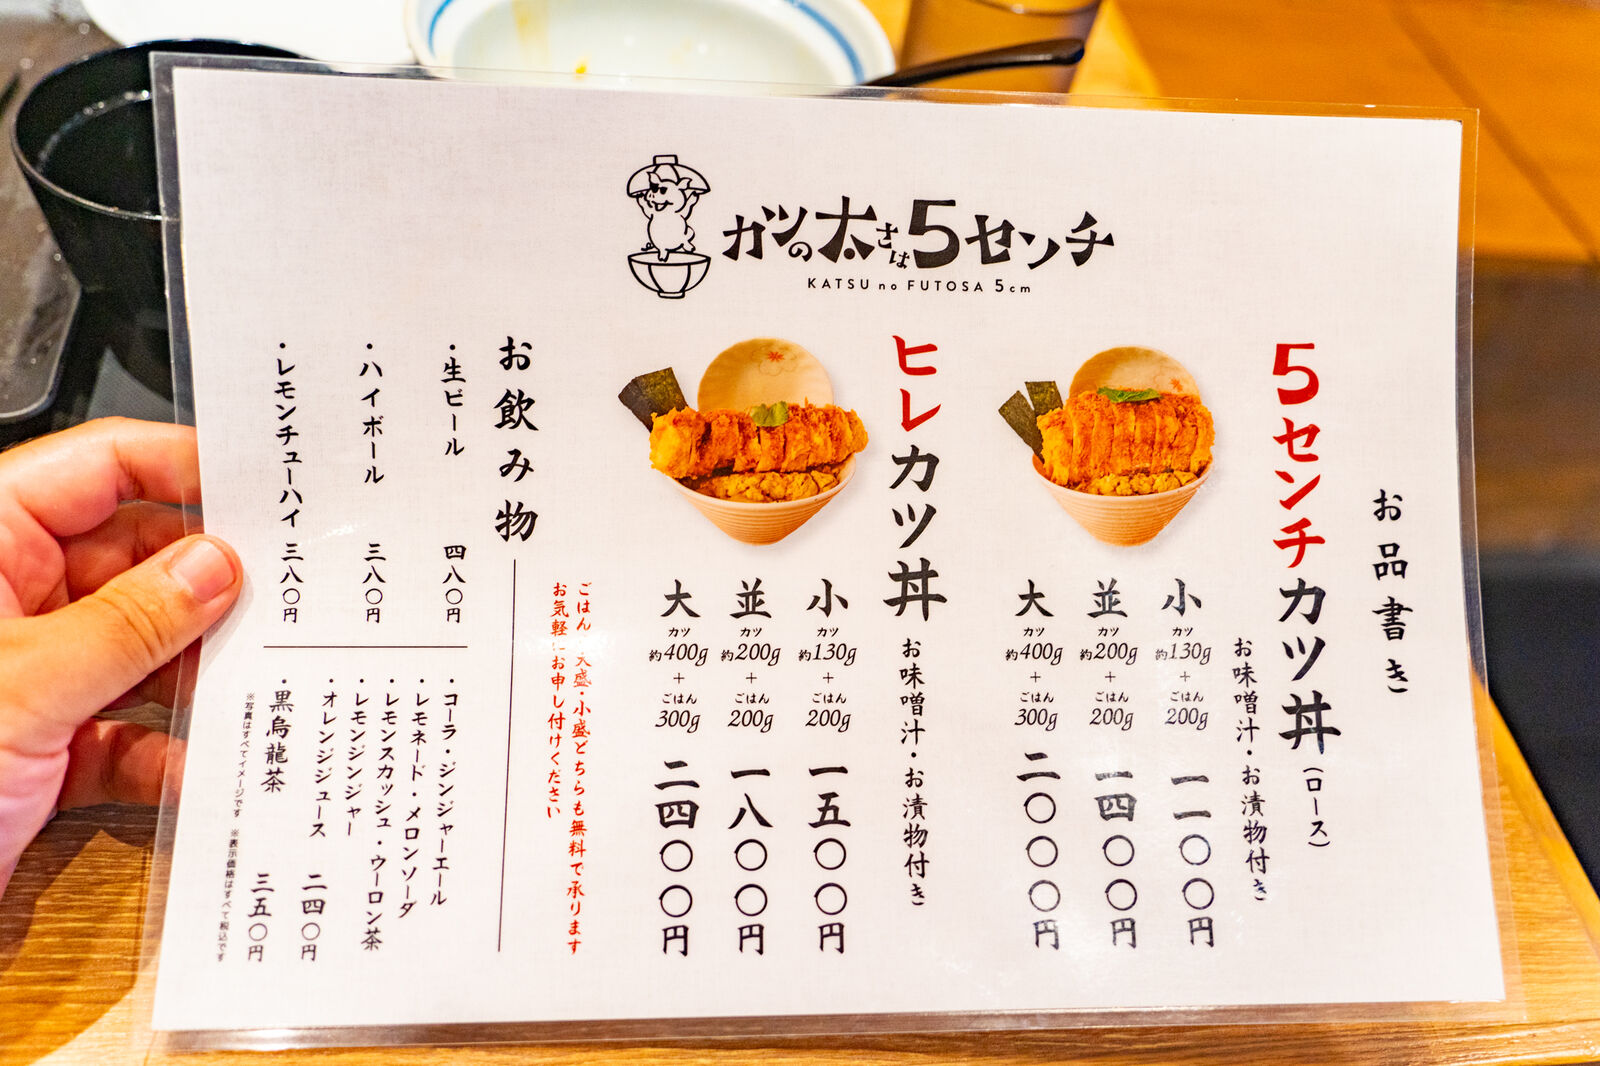 カツの太さは5センチ
KATSU no FUTOSA 5cm
お品書き
5センチカツ丼(ロース)
お味噌汁・お漬物付き
小
カツ
約130g
+
ごはん
200g
一一〇〇円
並
カツ
約200g
+
ごはん
200g
一四〇〇円
大
カツ
約400g
+
ごはん
300g
二〇〇〇円
ヒレカツ丼
お味噌汁・お漬物付き
小
カツ
約130g
+
ごはん
200g
一五〇〇円
並
カツ
約200g
+
ごはん
200g
一八〇〇円
大
カツ
約400g
+
ごはん
300g
二四〇〇円
ごはん 大盛・小盛どちらも無料で承ります
お気軽にお申し付けください
お飲み物
・生ビール 四八〇円
・ハイボール 三八〇円
・レモンチューハイ 三八〇円
・コーラ・ジンジャーエール
・レモネード・メロンソーダ
・レモンスカッシュ・ウーロン茶
・レモンジンジャー
・オレンジジュース 二四〇円
・黒烏龍茶 三五〇円
※写真はすべてイメージです ※表示価格はすべて税込です